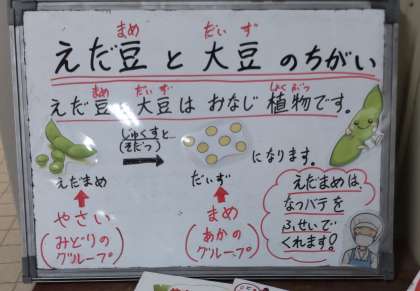 まめ だい ず
えだ豆 と 大豆 のちがい
まめ だい ず しょくぶつ
えだ豆 大豆は おなじ 植物です。
じゅくすと
(そだつ)
になります。
えだまめ
だいず
やさい
(みどりの
グループ)
まめ
(あかの
グループ)
えだまめは、
なつバテを
ふせいで
くれます!